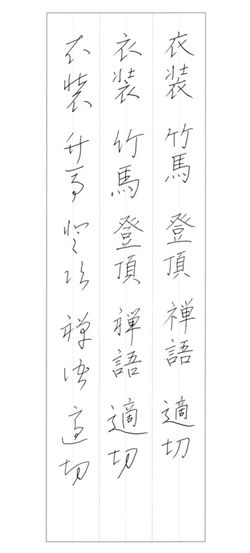 衣装 竹馬 登頂 禅語 適切
衣装 竹馬 登頂 禅語 適切
衣装 竹馬 登頂 禅語 適切